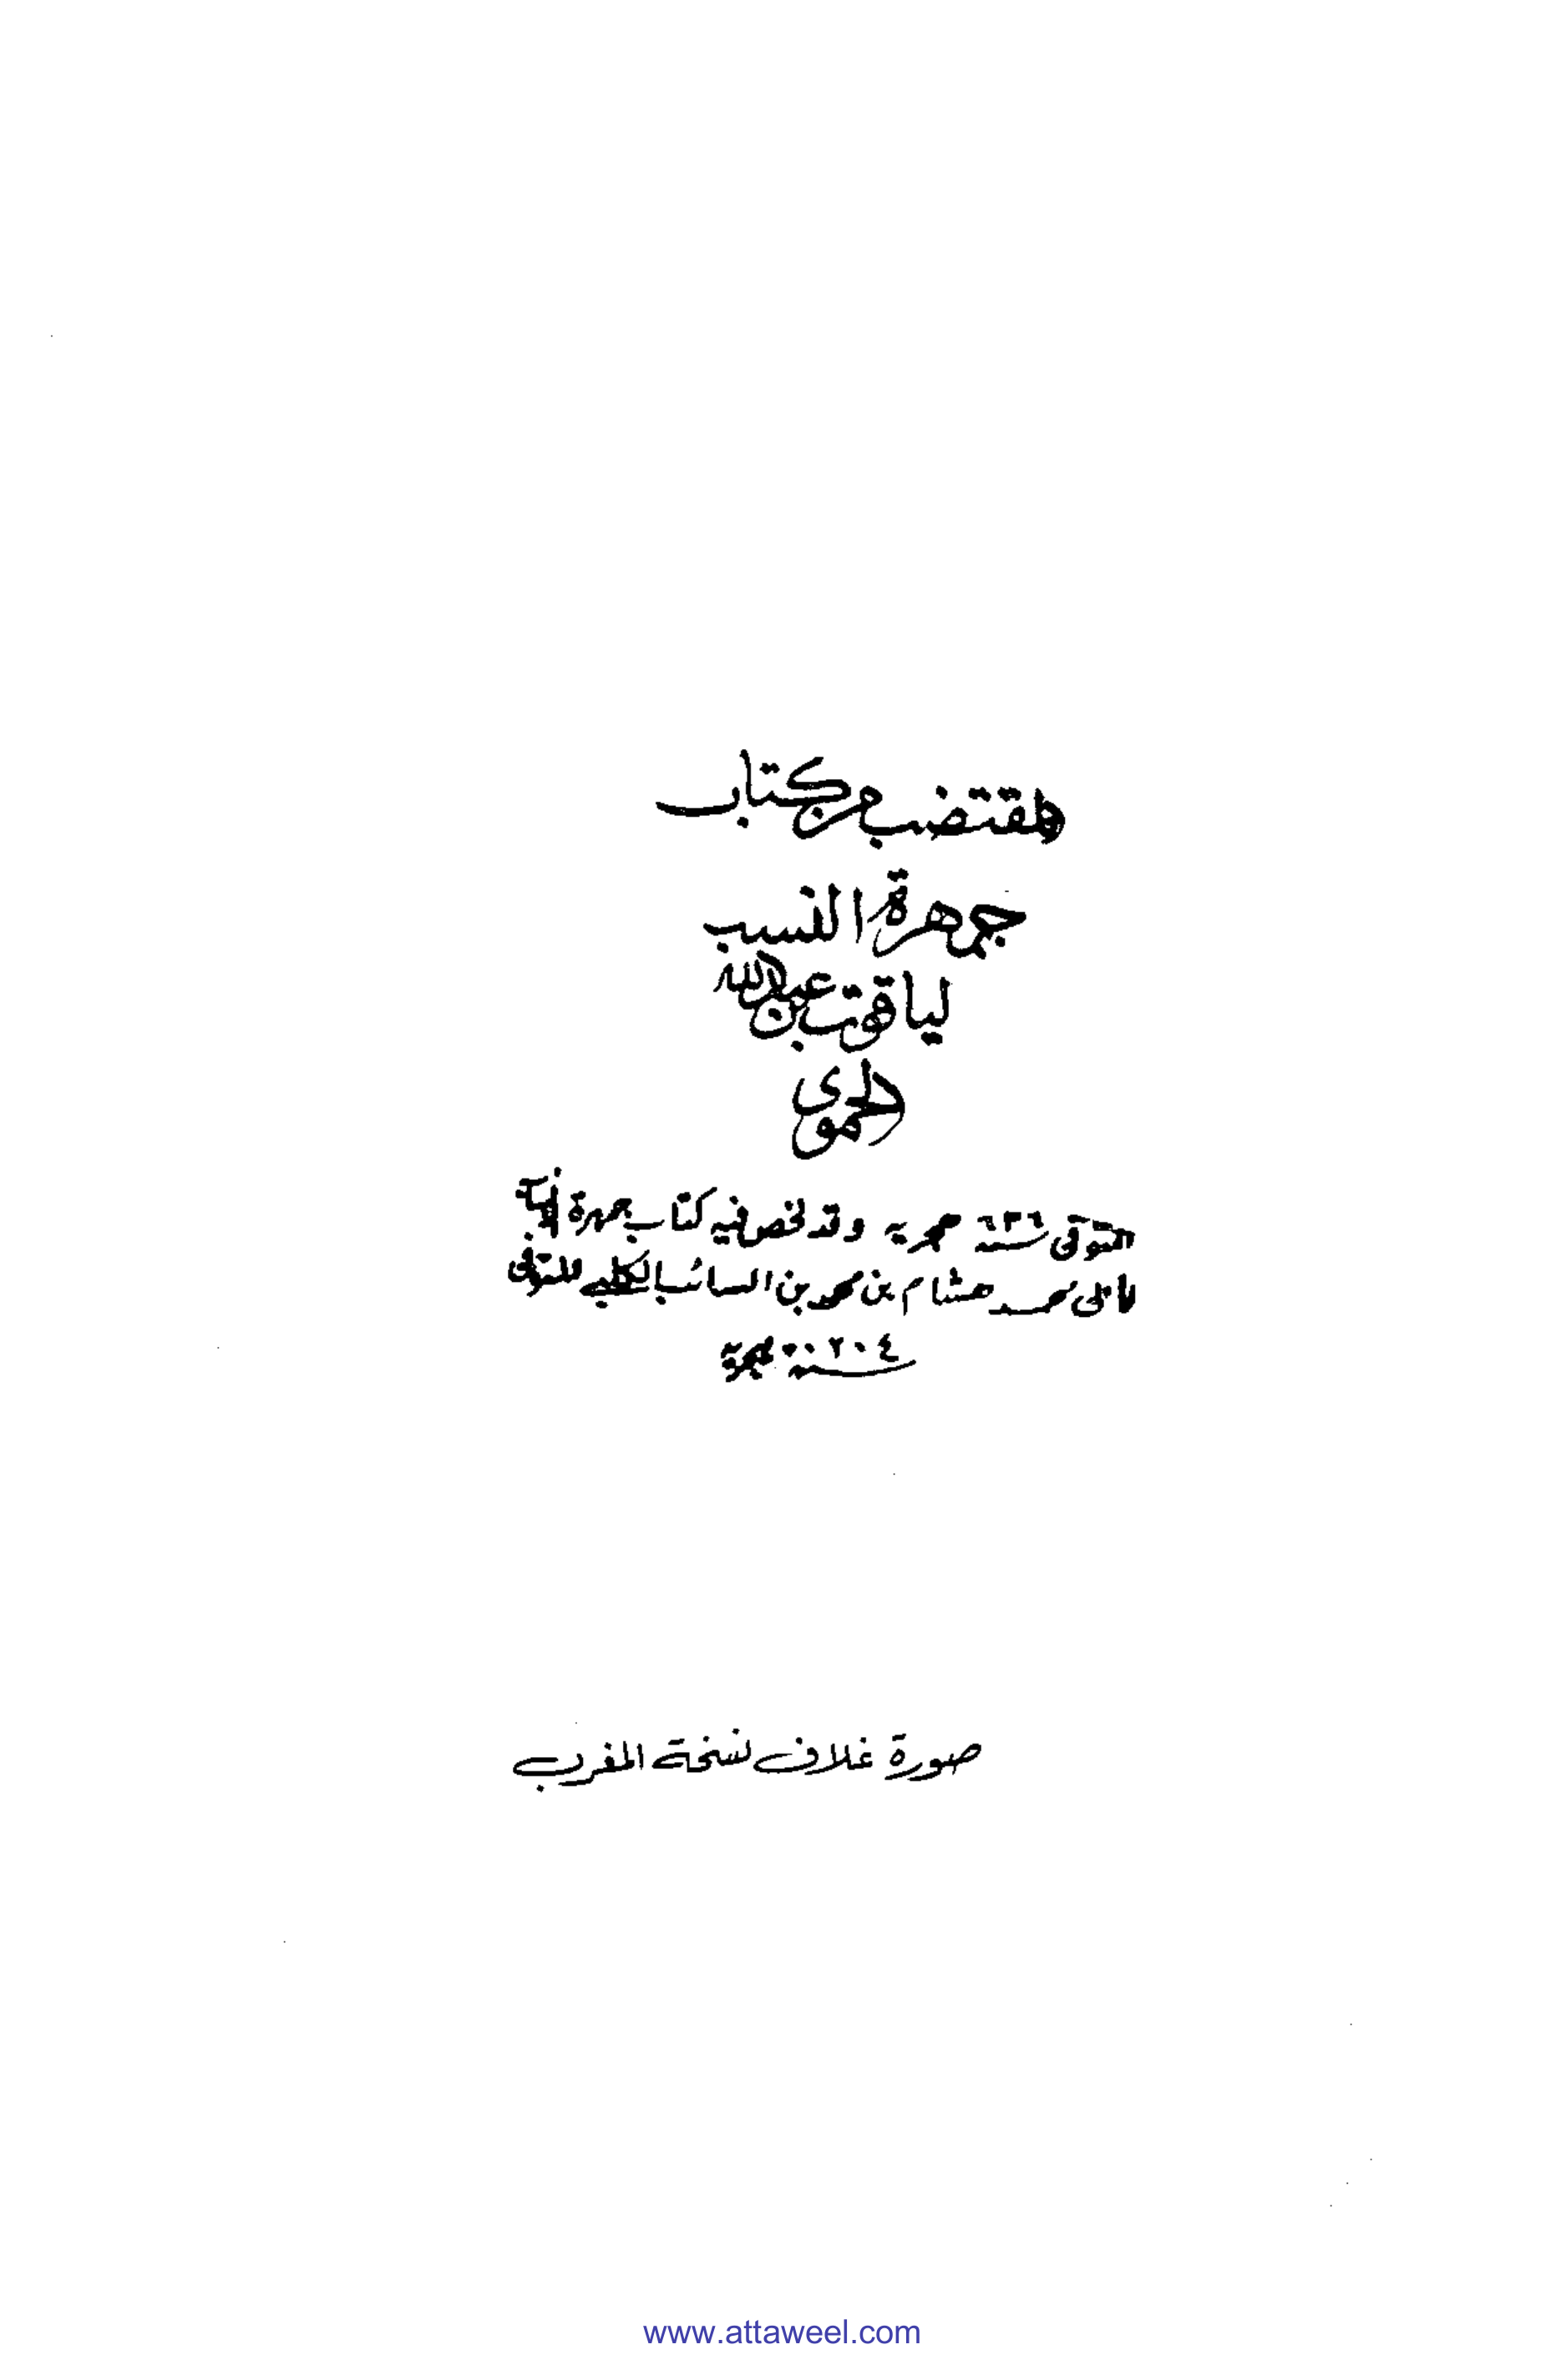 المقتضب من كتاب
جمهرة النسب
لياقوت بن عبد الله
الحموي
المتوفى سنة ٦٢٦ هجرية وقد لخص فيه كتاب جمهرة
محمد هشام بن محمد بن السائب الكلبي المتوفى
سنة ٢٠٤ هجرية
صورة غلاف نسخة المغرب
www.attaweel.com